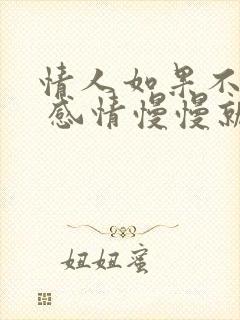 情人如果不
感情慢慢就
妞妞蜜